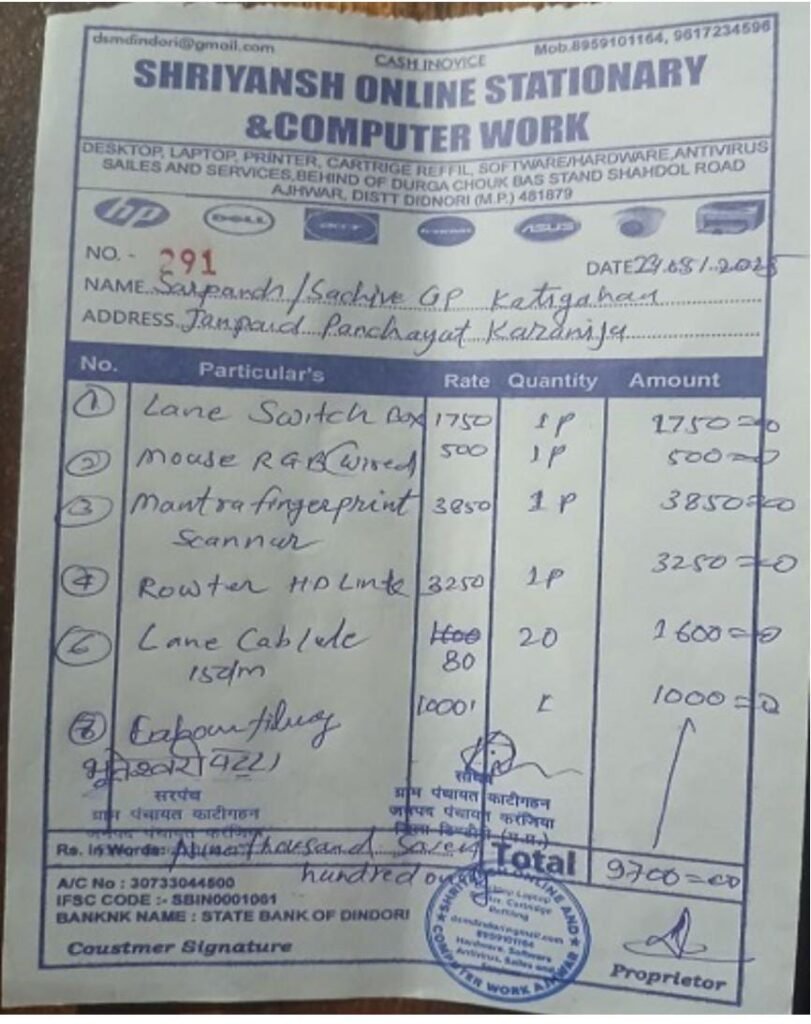 dsmdindori@gmail.com
CASH INOVICE
Mob.8959101164, 9617234596
SHRIYANSH ONLINE STATIONARY
&COMPUTER WORK
DESKTOP, LAPTOP, PRINTER, CARTRIGE REFFIL, SOFTWARE/HARDWARE,ANTIVIRUS
SAILES AND SERVICES,BEHIND OF DURGA CHOUK BAS STAND SHAHDOL ROAD
AJHWAR, DISTT DIDNORI (M.P.) 481879
hp DELL acer ASUS
NO. - 291
DATE
NAME Sarpanch/Sachive GP Katigahan
ADDRESS Janpad Panchayat Karanjiya
No. Particular's Rate Quantity Amount
1 Lane Switch Box 1750 1P 1750=00
2 Mouse RGB (Wired) 500 1P 500=00
3 Mantra fingerprint 3850 1P 3850=00
Scannur
4 Rowter HD Link 3250 1P 3250=00
6 Lane Cable 1600 20 1600=00
80
1000 1000=00
सरपंच
ग्राम पंचायत काटीगहन
जनपद पंचायत करंजिया
सचिव
ग्राम पंचायत काटीगहन
जनपद पंचायत करंजिया
जिला डिण्डौरी (म.प्र.)
Rs. in Words: thousand Seven
hundred only
Total 9700=00
A/C No : 30733044500
IFSC CODE :- SBIN0001061
BANKNK NAME : STATE BANK OF DINDORI
Coustmer Signature
SHRIYANSH ONLINE AND
COMPUTER WORK AJHWAR
dsmdindori@gmail.com
8959101164
Hardware, Software
Antivirus, Sailes and
Proprietor